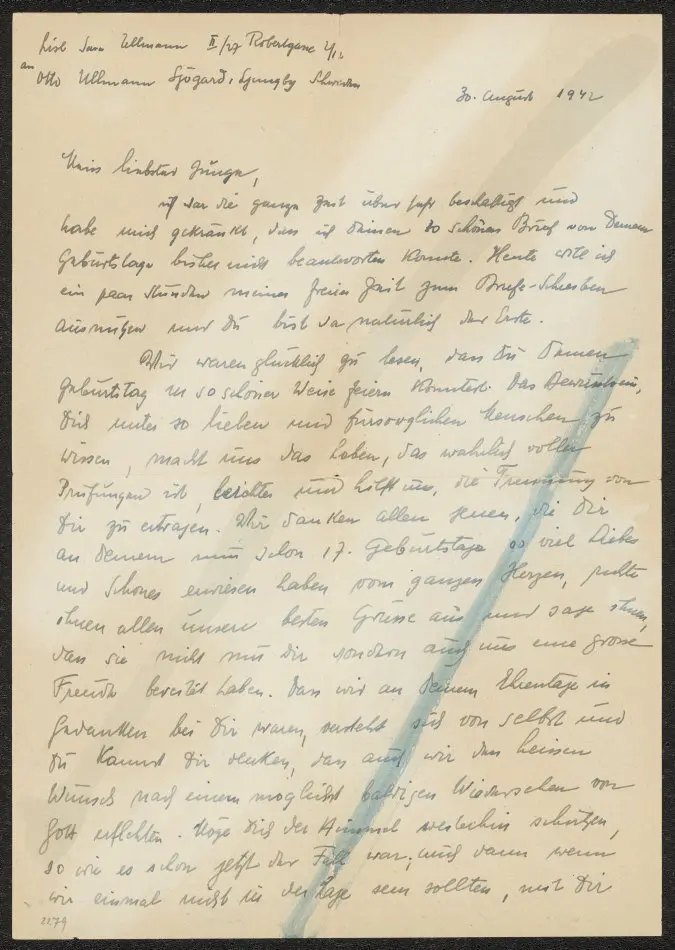 Lisl Sara Ullmann II/27 Robertgasse 2/12
an Otto Ullmann Sjögard, Ljungby Schweden
30. August 1942
Mein liebster Junge,
ich war die ganze Zeit über sehr beschäftigt und
habe mich gekränkt, dass ich Deinen so schönen Brief von Deinem
Geburtstage bisher nicht beantworten konnte. Heute will ich
ein paar Stunden meiner freien Zeit zum Briefe-Schreiben
ausnützen und Du bist ja natürlich der Erste.
Wir waren glücklich zu lesen, dass Du Deinen
Geburtstag in so schöner Weise feiern konntest. Das Bewusstsein,
Dich unter so lieben und fürsorglichen Menschen zu
wissen, macht uns das Leben, das wahrlich voller
Prüfungen ist, leichter und hilft uns, die Trennung von
Dir zu ertragen. Wir danken allen jenen, die Dir
an Deinem nun schon 17. Geburtstage so viel Liebes
und Schönes erwiesen haben vom ganzen Herzen, richte
ihnen allen unsere besten Grüsse aus und sage ihnen,
dass sie nicht nur Dir sondern auch uns eine grosse
Freude bereitet haben. Dass wir an Deinem Ehrentage in
Gedanken bei Dir waren, versteht sich von selbst und
Du kannst Dir denken, dass auch wir den heissen
Wunsch nach einem möglichst baldigen Wiedersehen von
Gott erflehten. Möge Dich der Himmel weiterhin schützen,
so wie es schon jetzt der Fall war, auch dann wenn
wir einmal nicht in der Lage sein sollten, mit Dir
2279